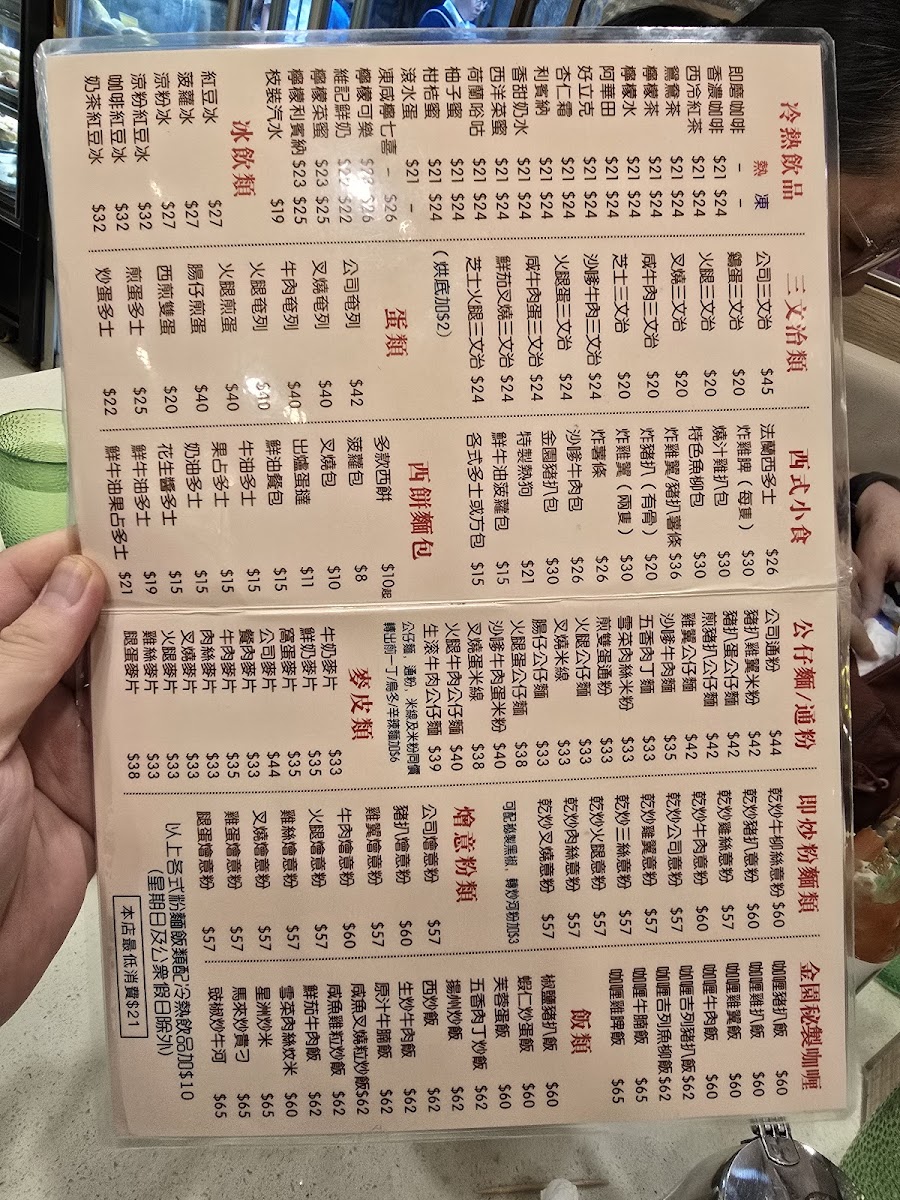 冷熱飲品
熱 凍
即磨咖啡 - -
香濃咖啡 $21 $24
西冷紅茶 $21 $24
鴛鴦茶 $21 $24
檸檬茶 $21 $24
檸檬水 $21 $24
阿華田 $21 $24
好立克 $21 $24
杏仁霜 $21 $24
利賓納 $21 $24
香甜奶水 $21 $24
西洋菜蜜 $21 $24
荷蘭唂咕 $21 $24
柚子蜜 $21 $24
柑桔蜜 $21 $24
滾水蛋 $21 -
凍咸檸七喜 - $26
檸檬可樂 $26
維記鮮奶 $22
檸檬菜蜜 $23 $25
檸檬利賓納 $23 $25
枝裝汽水 $19
冰飲類
紅豆冰 $27
菠蘿冰 $27
涼粉冰 $27
涼粉紅豆冰 $32
咖啡紅豆冰 $32
奶茶紅豆冰 $32
三文治類
公司三文治 $45
雞蛋三文治 $20
火腿三文治 $20
叉燒三文治 $20
咸牛肉三文治 $20
芝士三文治 $20
沙嗲牛肉三文治 $24
火腿蛋三文治 $24
咸牛肉蛋三文治 $24
鮮茄叉燒三文治 $24
芝士火腿三文治 $24
(烘底加$2)
蛋類
公司奄列 $42
叉燒奄列 $40
牛肉奄列 $40
火腿奄列 $40
火腿煎蛋 $40
腸仔煎蛋 $40
西煎雙蛋 $20
煎蛋多士 $25
炒蛋多士 $22
西式小食
法蘭西多士 $26
炸雞脾(每隻) $30
燒汁雞扒包 $30
特色魚柳包 $30
炸雞翼/豬扒薯條 $36
炸豬扒(有骨) $20
炸雞翼(兩隻) $30
炸薯條 $26
沙嗲牛肉包 $26
金園豬扒包 $30
特製熱狗 $21
鮮牛油菠蘿包 $15
各式多士或方包 $15
西餅麵包
多款西餅 $10起
菠蘿包 $8
叉燒包 $10
出爐蛋撻 $11
鮮油餐包 $15
牛油多士 $15
果占多士 $15
奶油多士 $15
花生醬多士 $15
鮮牛油多士 $19
鮮牛油果占多士 $21
公仔麵/通粉
公司通粉 $44
豬扒雞翼米粉 $42
豬扒蛋公仔麵 $42
煎豬扒公仔麵 $42
雞翼公仔麵 $42
沙嗲牛肉麵 $35
五香肉丁麵 $33
雪菜肉絲米粉 $33
煎雙蛋通粉 $33
火腿公仔麵 $33
叉燒米線 $33
腸仔公仔麵 $33
火腿蛋公仔麵 $38
沙嗲牛肉蛋米粉 $40
叉燒蛋米線 $38
火腿牛肉公仔麵 $40
生滾牛肉公仔麵 $39
公仔麵，通粉，米線及米粉同價
轉出前一丁/烏冬/辛辣麵加$6
麥皮類
牛奶麥片 $33
鮮奶麥片 $35
窩蛋麥片 $35
公司麥片 $44
餐肉麥片 $33
牛肉麥片 $35
肉絲麥片 $33
叉燒麥片 $33
火腿麥片 $33
雞絲麥片 $33
腿蛋麥片 $38
即炒粉麵類
乾炒牛柳絲意粉 $60
乾炒豬扒意粉 $60
乾炒雞絲意粉 $57
乾炒牛肉意粉 $60
乾炒公司意粉 $57
乾炒雞翼意粉 $57
乾炒三絲意粉 $57
乾炒火腿意粉 $57
乾炒肉絲意粉 $57
乾炒叉燒意粉 $57
可配秘製黑椒，轉炒河粉加$3
燴意粉類
公司燴意粉 $57
豬扒燴意粉 $60
雞翼燴意粉 $57
牛肉燴意粉 $60
火腿燴意粉 $57
雞絲燴意粉 $57
叉燒燴意粉 $57
雞蛋燴意粉 $57
腿蛋燴意粉 $57
金園秘製咖喱
咖喱豬扒飯 $60
咖喱雞扒飯 $60
咖喱雞翼飯 $60
咖喱牛肉飯 $60
咖喱吉列豬扒飯 $62
咖喱吉列魚柳飯 $62
咖喱牛腩飯 $65
咖喱雞脾飯 $65
飯類
椒鹽豬扒飯 $60
蝦仁炒蛋飯 $60
芙蓉蛋飯 $60
五香肉丁炒飯 $62
揚州炒飯 $62
西炒飯 $62
生炒牛肉飯 $62
原汁牛腩飯 $62
咸魚叉燒粒炒飯 $62
咸魚雞粒炒飯 $62
鮮茄牛肉飯 $62
雪菜肉絲炆米 $60
星洲炒米 $65
馬來炒貴刁 $65
豉椒炒牛河 $65
以上各式粉麵飯類配冷熱飲品加$10
(星期日及公眾假日除外)
本店最低消費$21